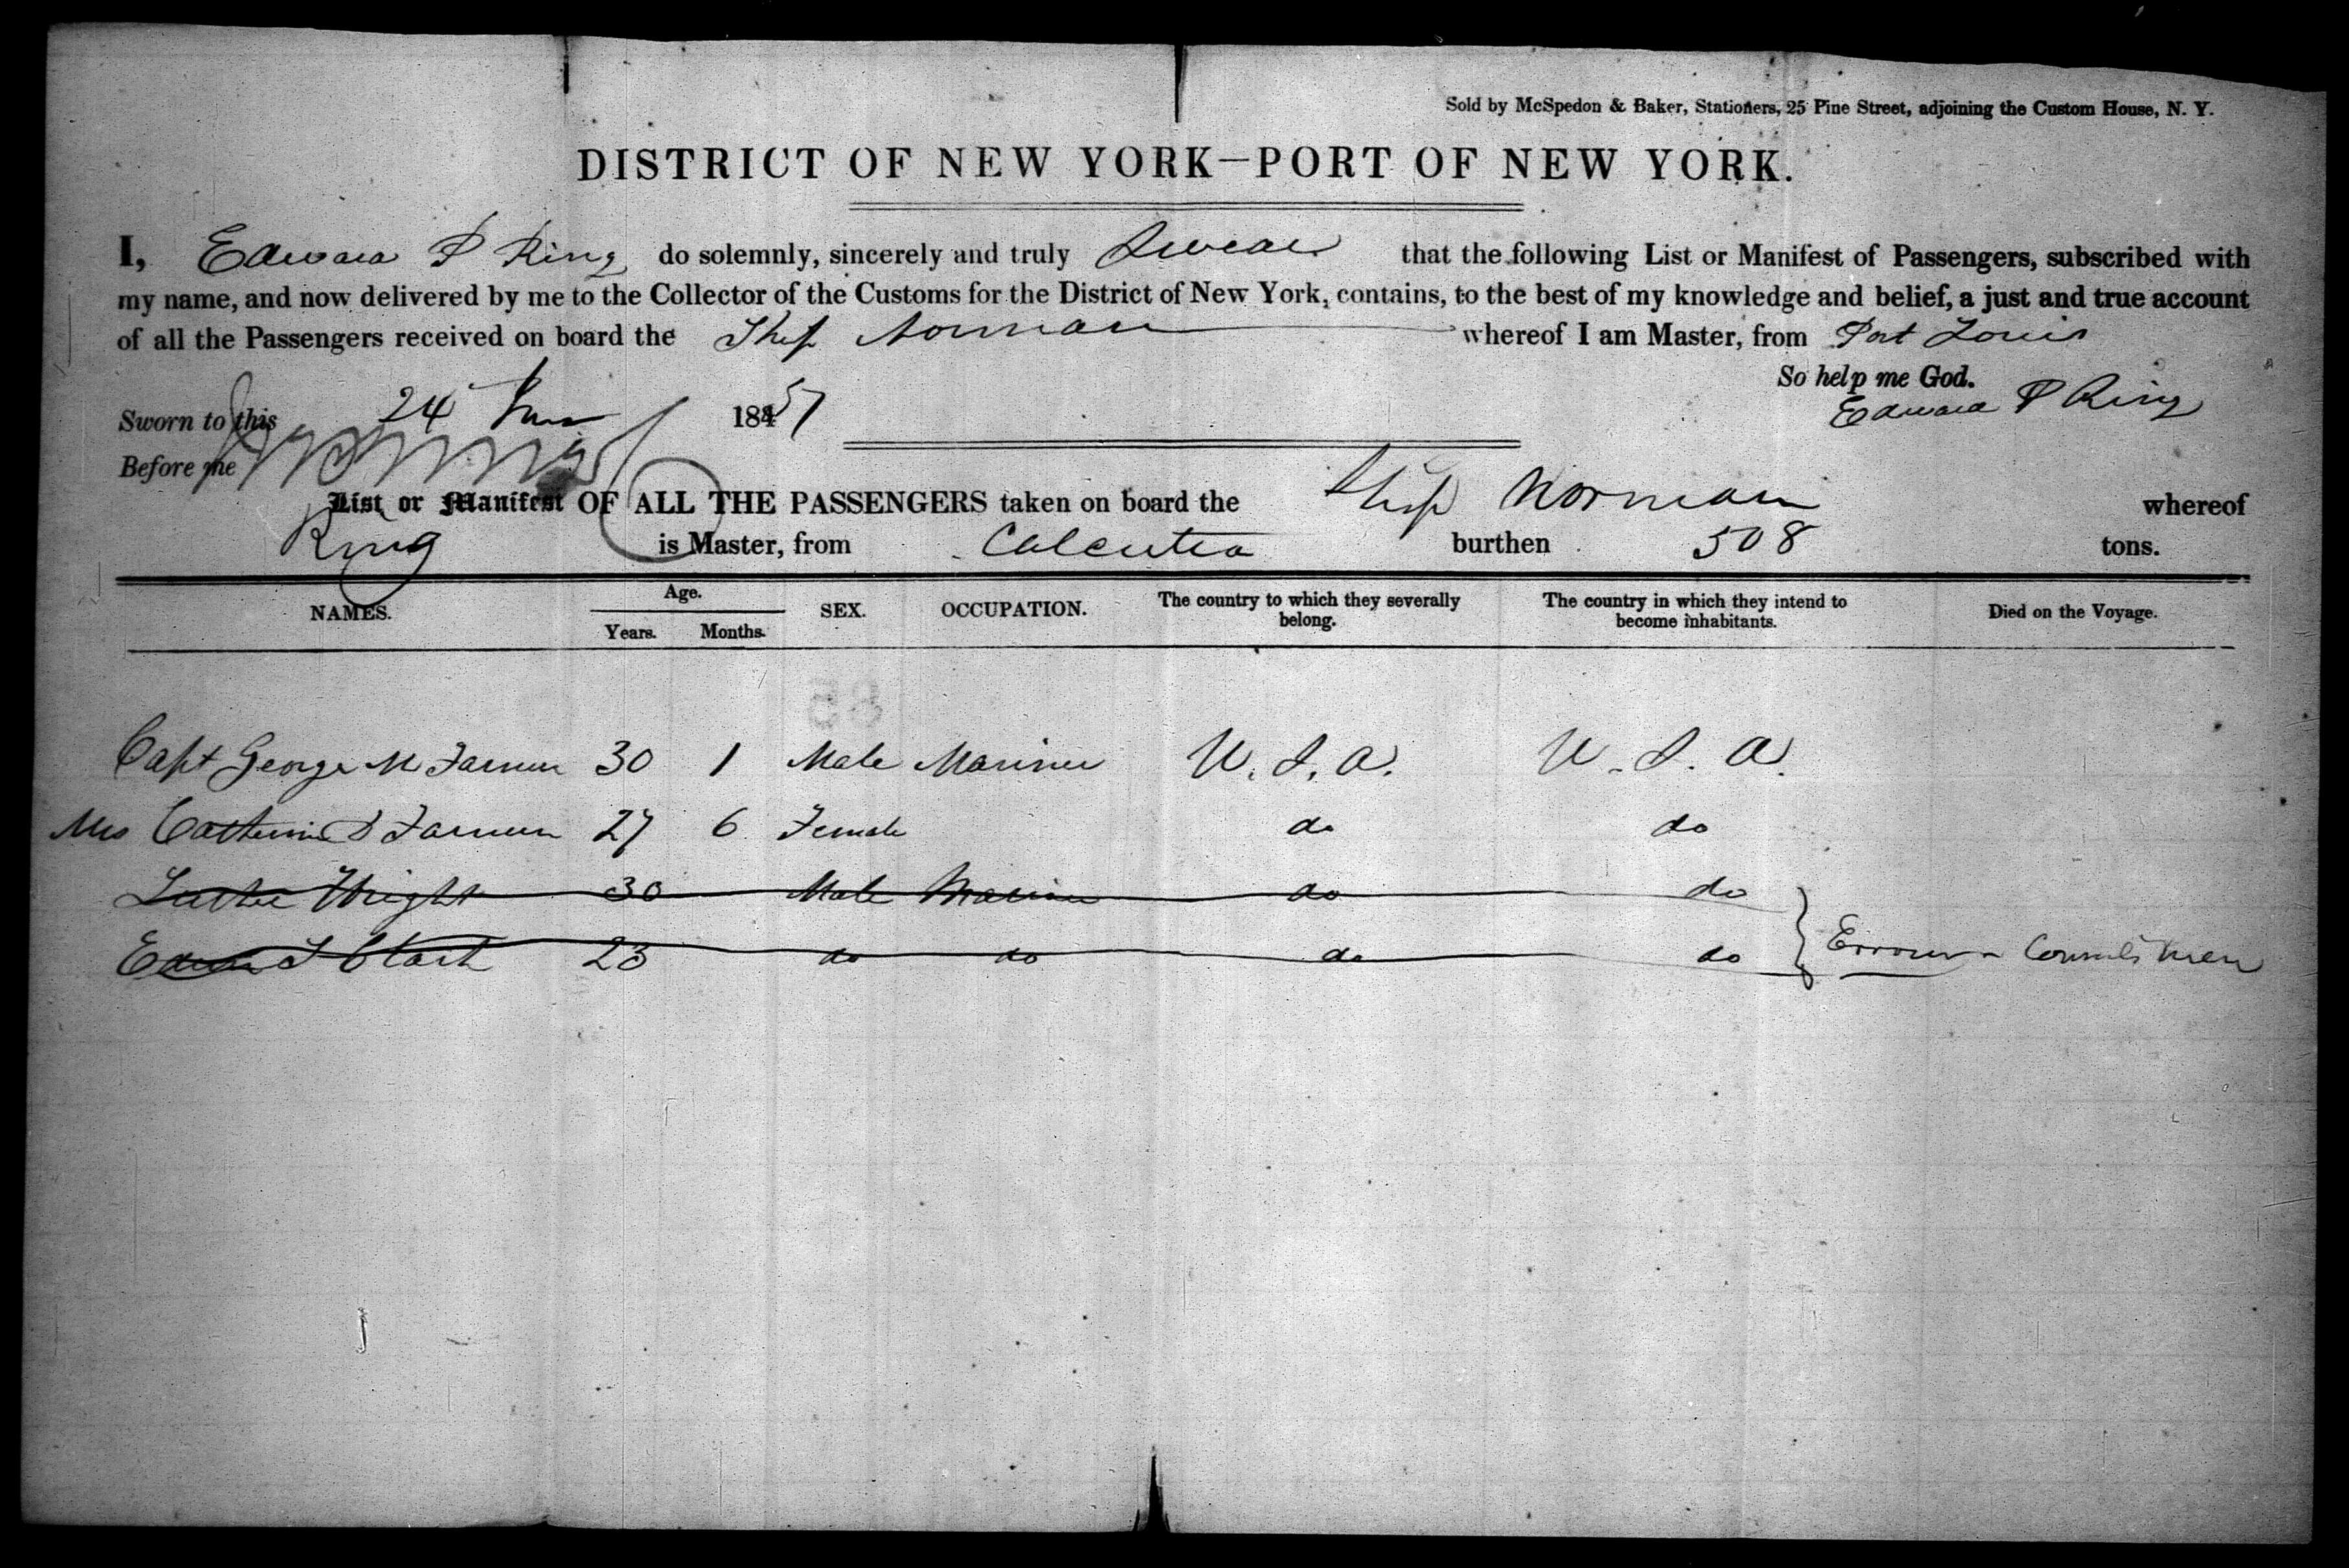 Sold by McSpedon & Baker, Stationers, 25 Pine Street, adjoining the Custom House, N. Y.
DISTRICT OF NEW YORK—PORT OF NEW YORK.
I, Edward P Ring do solemnly, sincerely and truly Swear that the following List or Manifest of Passengers, subscribed with
my name, and now delivered by me to the Collector of the Customs for the District of New York, contains, to the best of my knowledge and belief, a just and true account
of all the Passengers received on board the Ship Norman whereof I am Master, from Port Louis
So help me God.
Sworn to this 24 1851 Edward P Ring
Before me
List or Manifest OF ALL THE PASSENGERS taken on board the Ship Norman whereof
Ring is Master, from Calcutta burthen 508 tons.
NAMES. Age. Years. Months. SEX. OCCUPATION. The country to which they severally belong. The country in which they intend to become inhabitants. Died on the Voyage.
Capt George M Farnum 30 1 Male Mariner U. S. A. U. S. A.
Mrs Catherine S Farnum 27 6 Female do do
Luther Wright 30 Male Mariner do do
Edwin T Clark 23 do do do do } Errour - Consuls Men